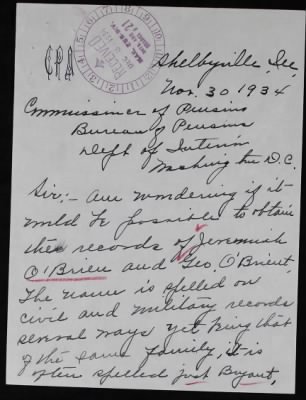 CPA
RECEIVED
Shelbyville, Ill.
Nov. 30 1934
Commissioner of Pensions
Bureau of Pensions
Dept of Interior
Washington D.C.
Sir;- Am wondering if it
would be possible to obtain
the records of Jeremiah
O'Brien and Geo. O'Brient.
The name is spelled on
civil and military records
several ways yet being that
of the same family, it is
often spelled just Bryant,